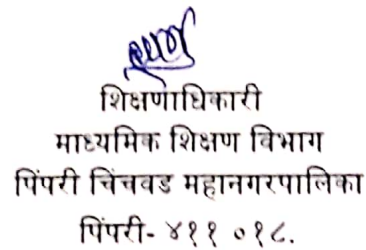 शिक्षणाधिकारी
माध्यमिक शिक्षण विभाग
पिंपरी चिंचवड महानगरपालिका
पिंपरी- ४११ ०१८.